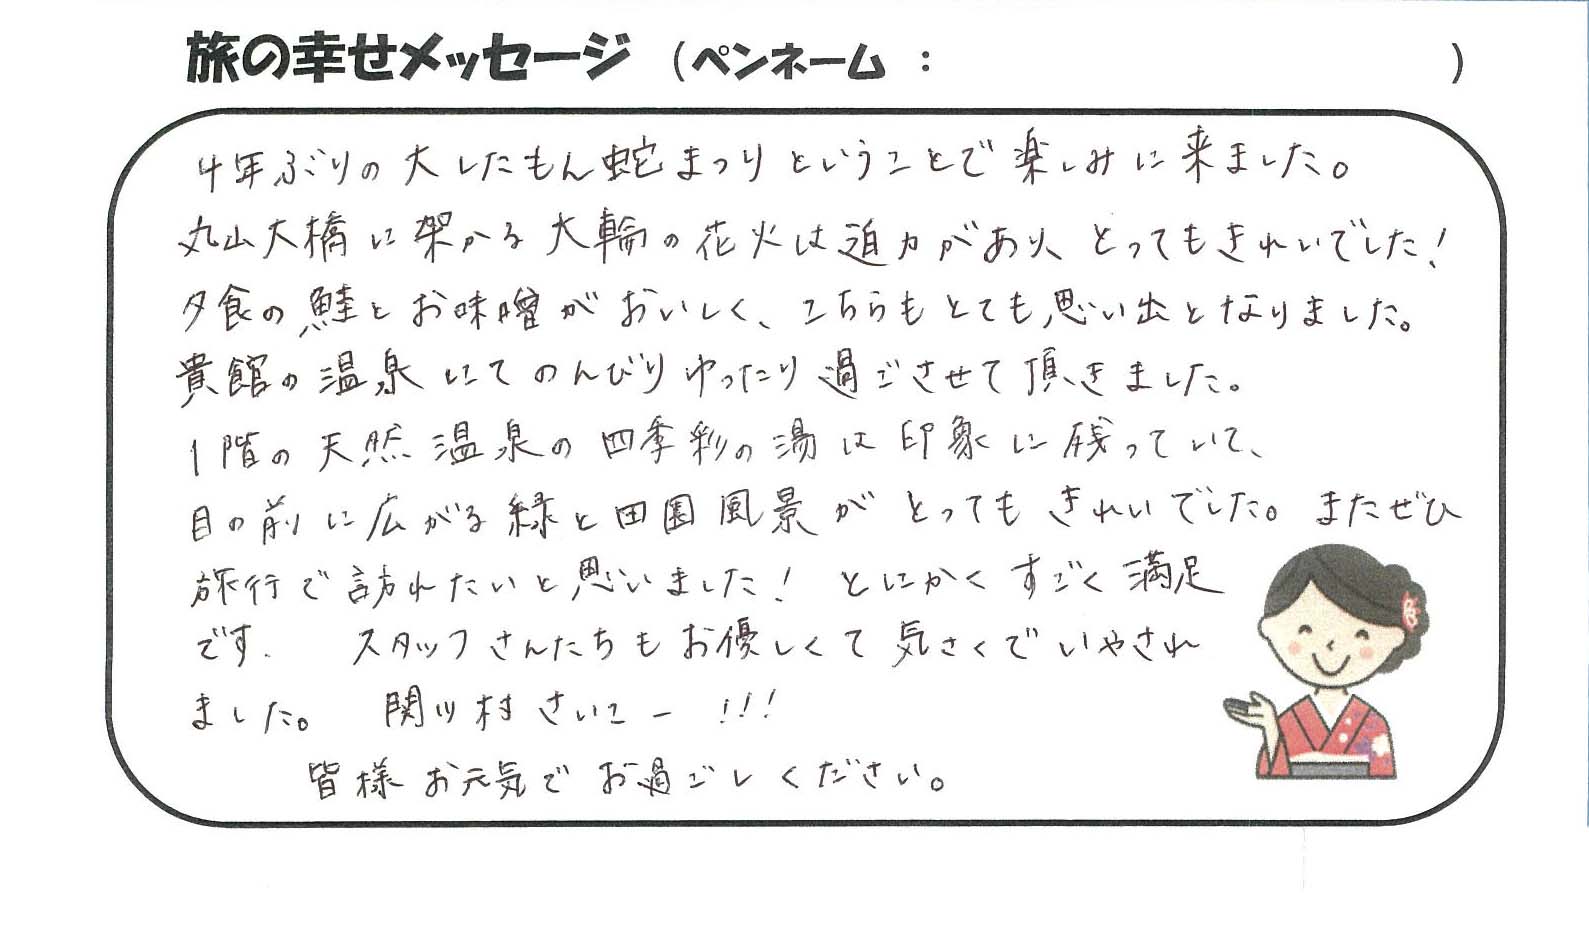 旅の幸せメッセージ (ペンネーム : )
4年ぶりの大したもん蛇まつりということで楽しみに来ました。
丸山大橋に架かる大輪の花火は迫力があり、とってもきれいでした!
夕食の鮭とお味噌がおいしく、こちらもとても思い出となりました。
貴館の温泉にてのんびりゆったり過ごさせて頂きました。
1階の天然温泉の四季彩の湯は印象に残っていて、
目の前に広がる緑と田園風景がとってもきれいでした。またぜひ
旅行で訪れたいと思いました! とにかくすごく満足
です. スタッフさんたちもお優しくて気さくでいやされ
ました。 関川村さいこー!!!
皆様お元気でお過ごしください。